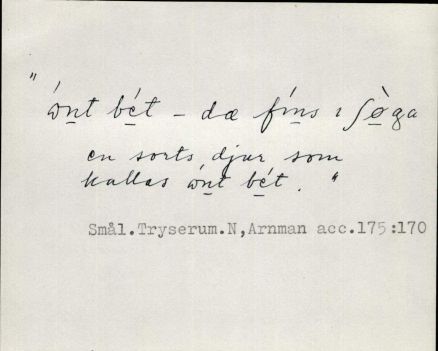 "ónt bét – dæ fíns ı ʃøga
en sorts djur som
kallas ónt bét."
Smål.Tryserum.N,Arnman acc.175:170